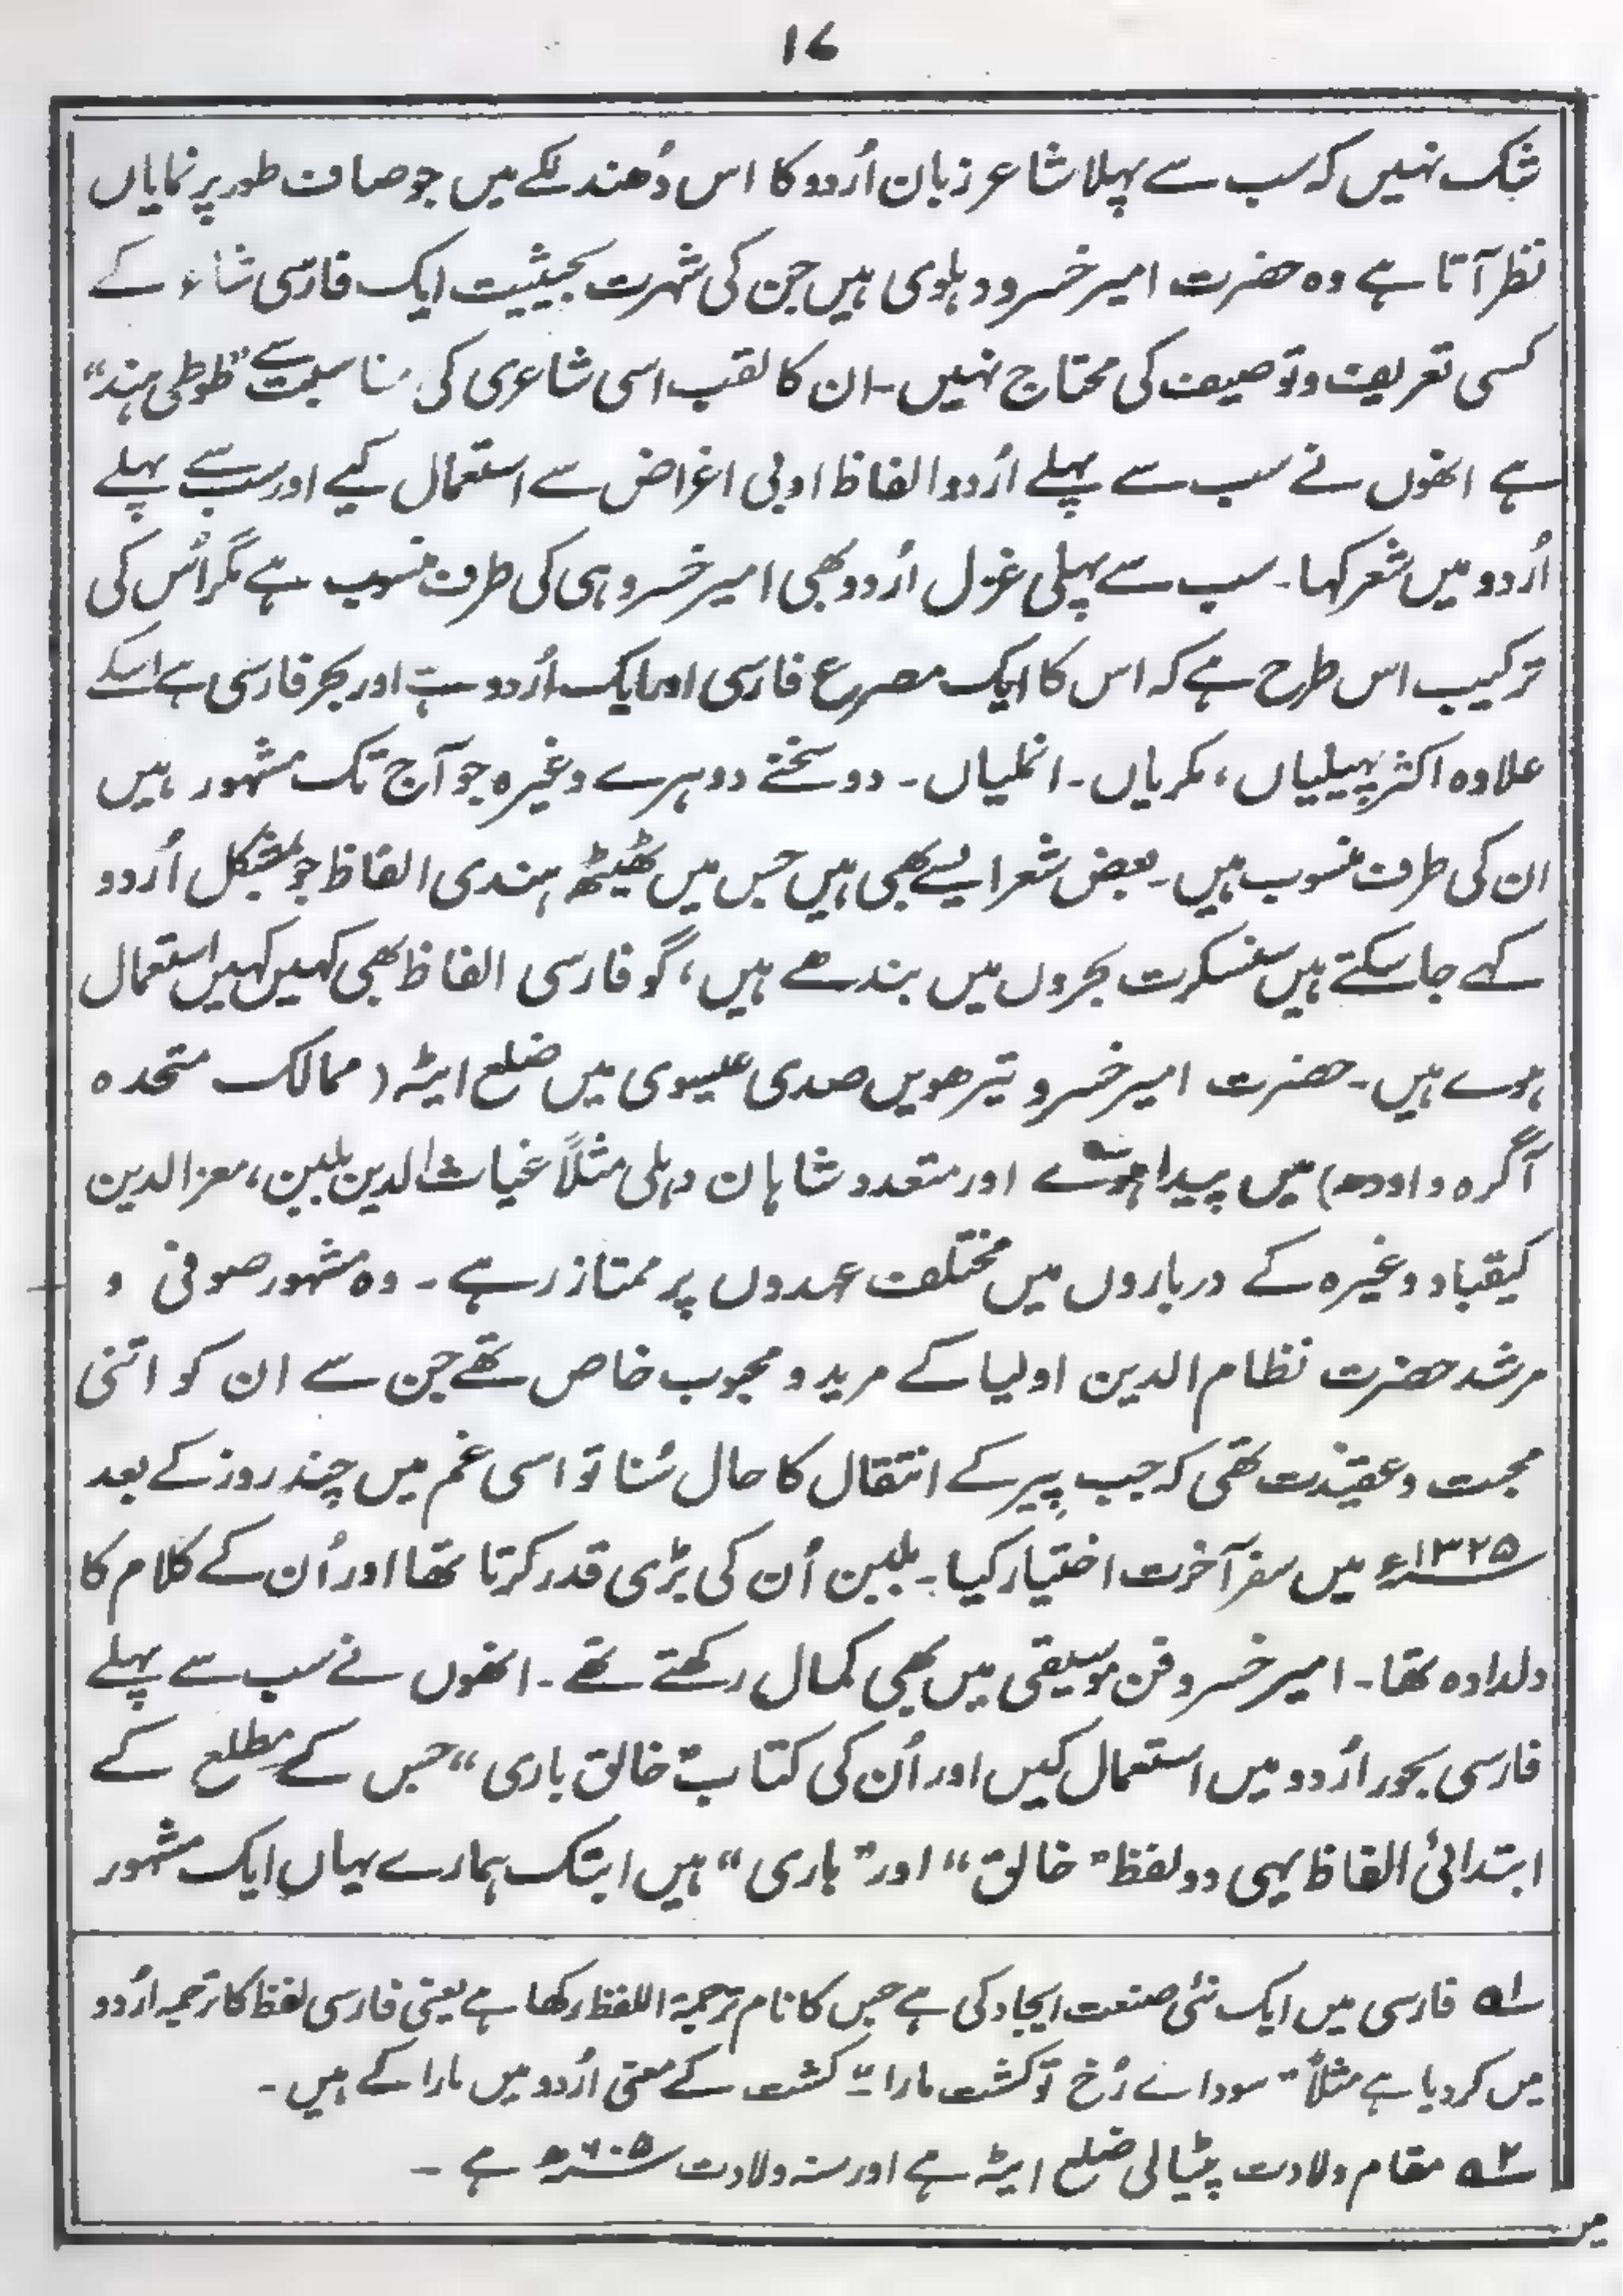 ۱۷
شک نہیں کہ سب سے پہلا شاعر زبان اُردو کا اس دُھندلکے میں جو صاف طور پر نمایاں
نظر آتا ہے وہ حضرت امیر خسرو دہلوی ہیں جن کی شہرت بحیثیت ایک فارسی شاعر کے
کسی تعریف و توصیف کی محتاج نہیں۔ ان کا لقب اسی شاعری کی مناسبت سے "طوطی ہند"
ہے انھوں نے سب سے پہلے اُردو الفاظ ادبی اغراض سے استعمال کیے اور سب سے پہلے
اُردو میں شعر کہا۔ سب سے پہلی غزل اُردو بھی امیر خسرو ہی کی طرف منسوب ہے مگر اُس کی
ترکیب اس طرح ہے کہ اس کا ایک مصرع فارسی اور ایک اُردو ہے اور بحر فارسی ہے اسکے
علاوہ اکثر پہیلیاں، مکریاں۔ انملیاں۔ دوسخنے دوہرے وغیرہ جو آج تک مشہور ہیں
ان کی طرف منسوب ہیں۔ بعض شعر ایسے بھی ہیں جس میں ٹھیٹھ ہندی الفاظ جو بمشکل اُردو
کہے جاسکتے ہیں سنسکرت بحروں میں بندھے ہیں، گو فارسی الفاظ بھی کہیں کہیں استعمال
ہوے ہیں۔ حضرت امیر خسرو تیرھویں صدی عیسوی میں ضلع ایٹہ (ممالک متحدہ
آگرہ و اودھ) میں پیدا ہوئے اور متعدد شاہان دہلی مثلاً غیاث الدین بلبن، معز الدین
کیقباد وغیرہ کے درباروں میں مختلف عہدوں پر ممتاز رہے۔ وہ مشہور صوفی و
مرشد حضرت نظام الدین اولیا کے مرید و محبوب خاص تھے جن سے ان کو اتنی
محبت و عقیدت تھی کہ جب پیر کے انتقال کا حال سُنا تو اسی غم میں چند روز کے بعد
۱۳۲۵ء میں سفر آخرت اختیار کیا۔ بلبن اُن کی بڑی قدر کرتا تھا اور اُن کے کلام کا
دلدادہ تھا۔ امیر خسرو فن موسیقی میں بھی کمال رکھتے تھے۔ انھوں نے سب سے پہلے
فارسی بحور اُردو میں استعمال کیں اور اُن کی کتاب "خالق باری" جس کے مطلع کے
ابتدائی الفاظ یہی دو لفظ "خالق" اور "باری" ہیں ابتک ہمارے یہاں ایک مشہور
۱ فارسی میں ایک نئی صنعت ایجاد کی ہے جس کا نام ترجمۃ اللفظ رکھا ہے یعنی فارسی لفظ کا ترجمہ اُردو
میں کردیا ہے مثلاً "سودائے رُخ تو کشت مارا" کشت کے معنی اُردو میں مارا کے ہیں۔
۲ مقام ولادت پٹیالی ضلع ایٹہ ہے اور سنہ ولادت ہے۔